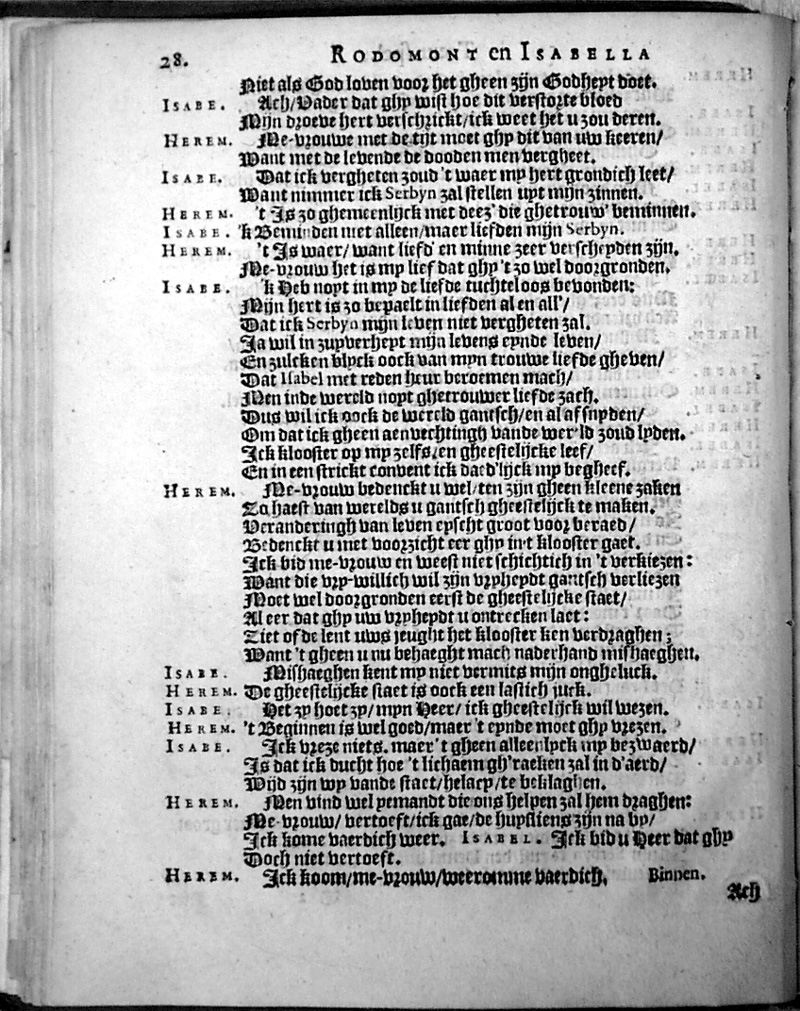 28. RODOMONT en ISABELLA
Niet als God loven voor het gheen zijn Godheyt doet.
ISABE. Ach/Vader dat ghy wist hoe dit verstorte bloed
Mijn droeve hert verschrickt/ick weet het u zou deren.
HEREM. Me-vrouwe met de tijt moet ghy dit van uw keeren/
Want met de levende de dooden men vergheet.
ISABE. Dat ick vergheten zoud 't waer my hert grondich leet/
Want nimmer ick Serbyn zal stellen uyt mijn zinnen.
HEREM. 't Is zo ghemeenlijck met deez' die ghetrouw' beminnen.
ISABE. 'k Beminden niet alleen/maer liefden mijn Serbyn.
HEREM. 't Is waer/want liefd' en minne zeer verscheyden zijn.
Me-vrouw het is my lief dat ghy 't zo wel doorgronden.
ISABE. 'k Heb noyt in my de liefde tuchteloos bevonden:
Mijn hert is zo bepaelt in liefden al en all'/
Dat ick Serbyn mijn leven niet vergheten zal.
Ja wil in zuyverheyt mijn levens eynde leven/
En zulcken blyck oock van myn trouwe liefde gheven/
Dat Isabel met reden heur beroemen mach/
Men inde wereld noyt ghetrouwer liefde zach.
Dus wil ick oock de wereld gantsch/en al afsnyden/
Om dat ick gheen aenvechtingh vande wereld zoud lyden.
Ick klooster op my zelfs/en gheestelijcke leef/
En in een strickt convent ick daed'lijck my begheef.
HEREM. Me-vrouw bedenckt u wel/ten zijn gheen kleene zaken
Zo haest van werelds u gantsch gheestelijck te maken.
Veranderingh van leven eyscht groot voor beraed/
Bedenckt u met voorzicht eer ghy in't klooster gaet.
Ick bid me-vrouw en weest niet schichtich in 't verkiezen:
Want die vry-willich wil zijn vryheydt gantsch verliezen
Moet wel doorgronden eerst de gheestelijcke staet/
Al eer dat ghy uw vryheydt u ontrecken laet:
Ziet of de lent uws jeught het klooster ken verdraghen;
Want 't gheen u nu behaeght mach naderhand mishaeghen.
ISABE. Mishaeghen kent my niet vermits mijn ongheluck.
HEREM. De gheestelijcke staet is oock een lastich juck.
ISABE. Het zy hoet zy/myn Heer/ick gheestelijck wil wezen.
HEREM. 't Beginnen is wel goed/maer 't eynde moet ghy vrezen.
ISABE. Ick vreze niets. maer 't gheen alleenlyck my bezwaerd/
Is dat ick ducht hoe 't lichaem gh'raeken zal in d'aerd/
Wijd zijn wy vande staet/helaey/te beklaghen.
HEREM. Men vind wel yemandt die ons helpen zal hem draghen:
Me-vrouw/ vertoeft/ick gae/de huysliens zijn na by/
Ick kome vaerdich weer. ISABEL. Ick bid u Heer dat ghy
Doch niet vertoeft.
HEREM. Ick koom/me-vrouw/weeromme vaerdich. Binnen.
Ach